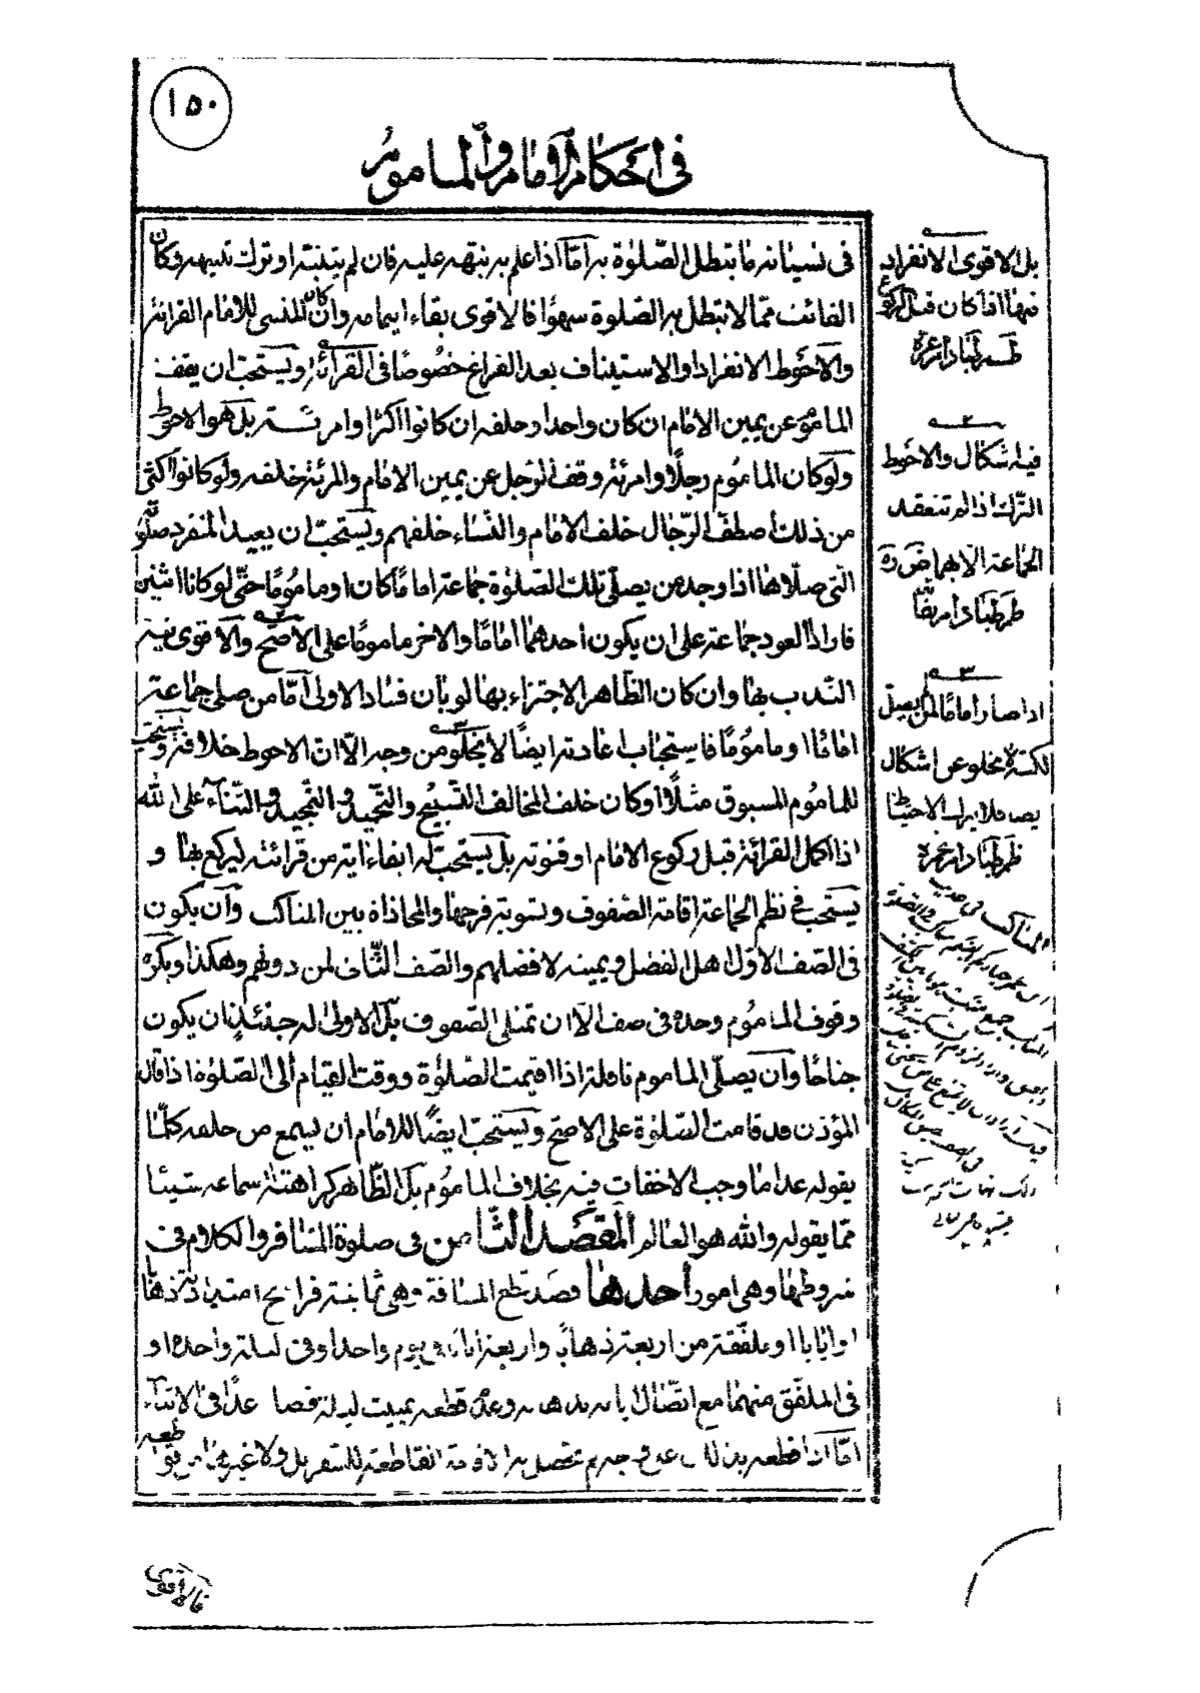 ١٥٠
فى احكام الامام والماموم
فى نسيانه ما تبطل الصّلوة به امّا اذا علم به نبّهه عليه فان لم يتنبّه او ترك تنبيهه وكان
الفائت ممّا لا تبطل به الصّلوة سهوًا فالاقوى بقاء ايتمامه وان كان المنسى للامام القرائة
والاحوط الانفراد او الاستيناف بعد الفراغ خصوصًا فى القرائة ويستحبّ ان يقف
الماموم عن يمين الامام ان كان واحدا وخلفه ان كانوا اكثر او امرئة بل هو الاحوط
ولو كان الماموم رجلًا وامرئة وقف الرّجل عن يمين الامام والمرئة خلفه ولو كانوا اكثر
من ذلك اصطفّ الرّجال خلف الامام والنّساء خلفهم ويستحبّ ان يعيد المنفرد صلوته
الّتى صلّاها اذا وجد من يصلّى تلك الصّلوة جماعة امامًا كان او مامومًا حتّى لو كانا اثنين
فارادا العود جماعة على ان يكون احدهما امامًا والاخر مامومًا على الاصحّ والاقوى نيّة
النّدب بها وان كان الظّاهر الاجتزاء بها لو بان فساد الاولى امّا من صلى جماعة
امامًا او مامومًا فاستحباب اعادته ايضًا لا يخلو من وجه الّا انّ الاحوط خلافه ويستحبّ
للماموم المسبوق مثلًا او كان خلف المخالف التّسبيح والتّحميد والتّمجيد والثّناء على الله
اذا اكمل القرائة قبل ركوع الامام او قنوته بل يستحبّ له ابقاء اية من قرائته ليركع بها و
يستحبّ فى نظم الجماعة اقامة الصّفوف وتسوية فرجها والمحاذاة بين المناكب وان يكون
فى الصّف الاوّل اهل الفضل ويمينه لافضلهم والصّف الثّانى لمن دونهم وهكذا ويكره
وقوف الماموم وحده فى صف الّا ان تمتلى الصّفوف بل الاولى له حينئذ ان يكون
جناحًا وان يصلّى الماموم نافلة اذا اقيمت الصّلوة ووقت القيام الى الصّلوة اذا قال
المؤذن قد قامت الصّلوة على الاصحّ ويستحبّ ايضًا للامام ان يسمع من خلفه كلّما
يقوله عدا ما وجب الاخفات فيه بخلاف الماموم بل الظّاهر كراهته سماعه شيئا
ممّا يقوله والله هو العالم المقصد الثّامن فى صلوة المسافر والكلام فى
شروطها وهى امور احدها قصد قطع المسافة وهى ثمانية فراسخ امتدادية ذهابا
او ايابا او ملفّقة من اربعة ذهابًا واربعة ايابًا فى يوم واحد او فى ليلة واحدة او
فى الملفّق منهما مع اتّصال ايابه بذهابه وعدم قطعه بمبيت ليلة فصاعدًا فى الاثناء
امّا اذا قطعه بذلك
فالاقوى
بل الاقوى الانفراد
فيها اذا كان قبل الركوع
٢
فيه اشكال والاحوط
الترك اذا لم تنعقد
الجماعة الّا بهما
٣
اذا صار امامًا لمن يصلّ
لكنّه لا يخلو عن اشكال
فلا يترك الاحتياط